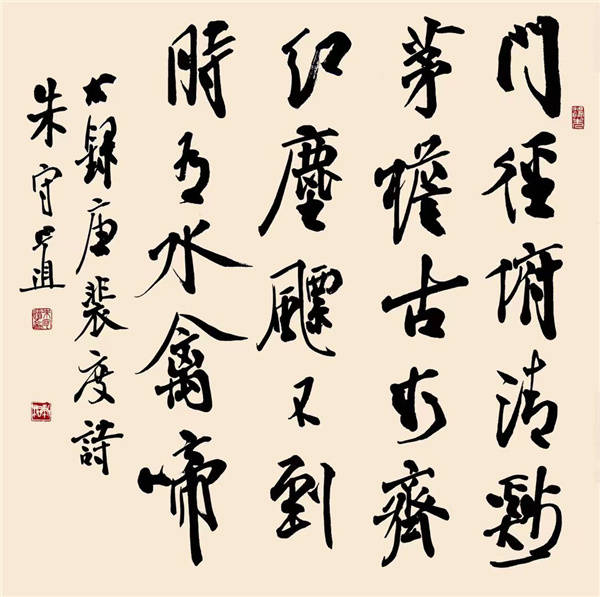 門徑俯清谿
茅檐古木齊
紅塵飄不到
時有水禽啼
右録唐裴度詩
朱守道